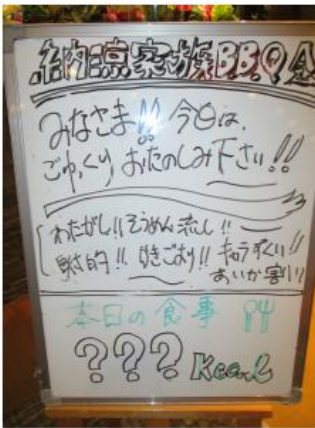 納涼家族BBQ会
みなさま!! 今日は、
ごゆっくり おたのしみ下さい!!
わたがし!! そうめん流し!!
射的!! かきごおり!! キャラすくい!!
すいか割り!
本日の食事
??? Kcal